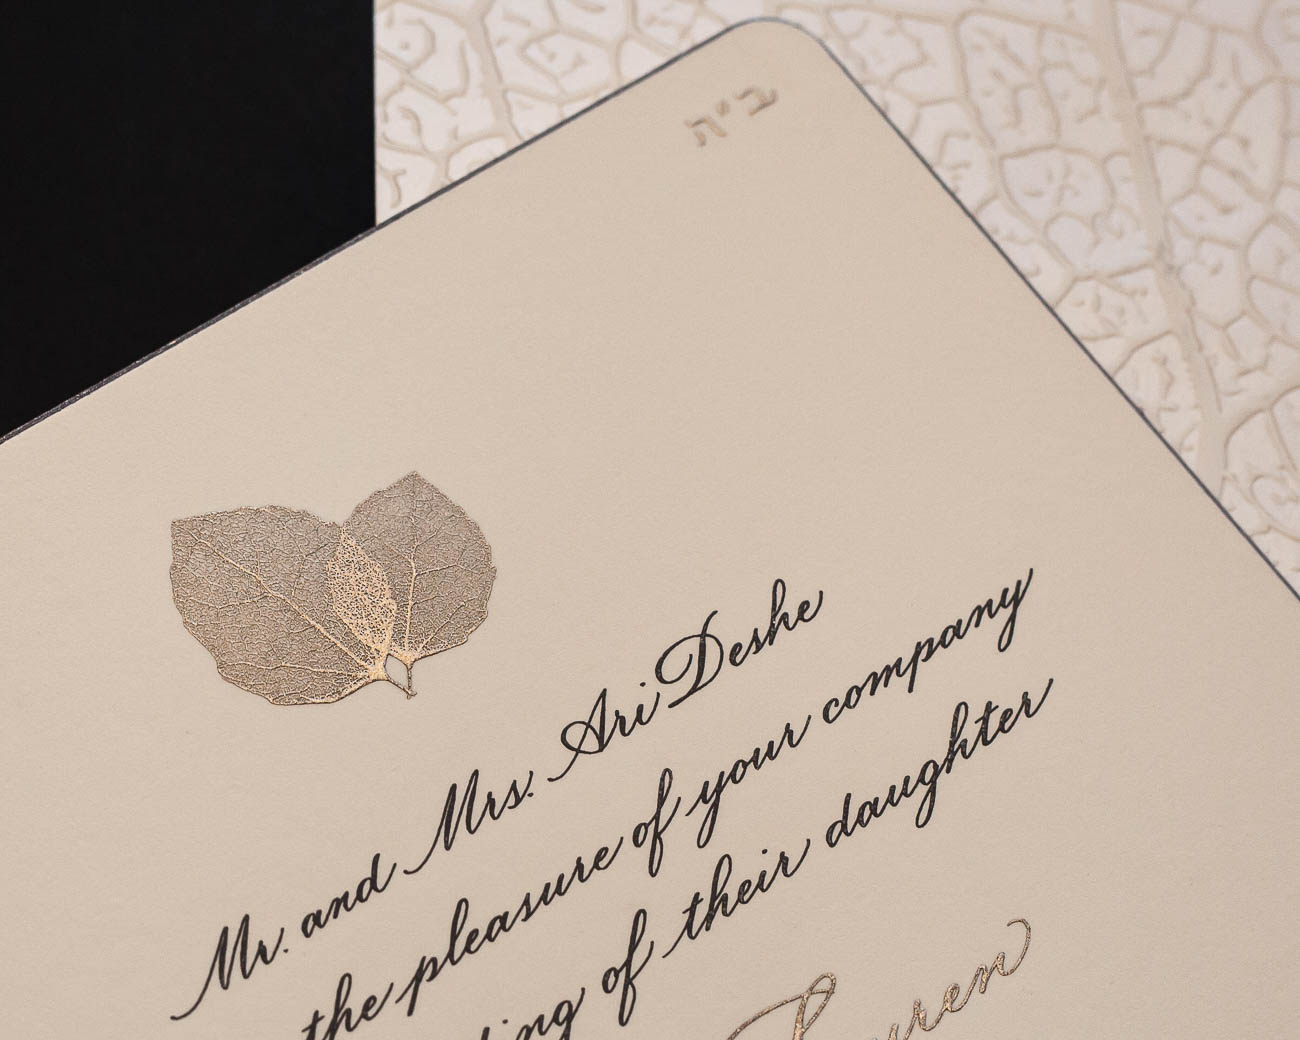 ב״ה
Mr. and Mrs. Ari Deshe
the pleasure of your company
of their daughter